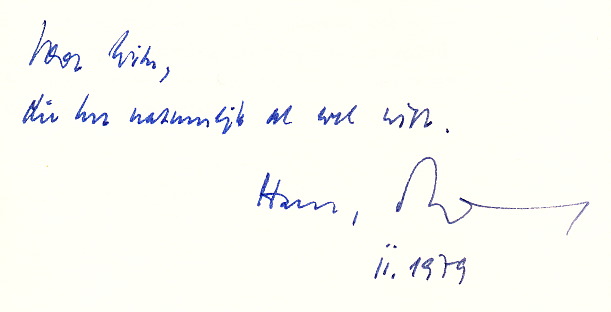 Voor Wim,
die het natuurlijk al wel wist.
Hans,
II.1979